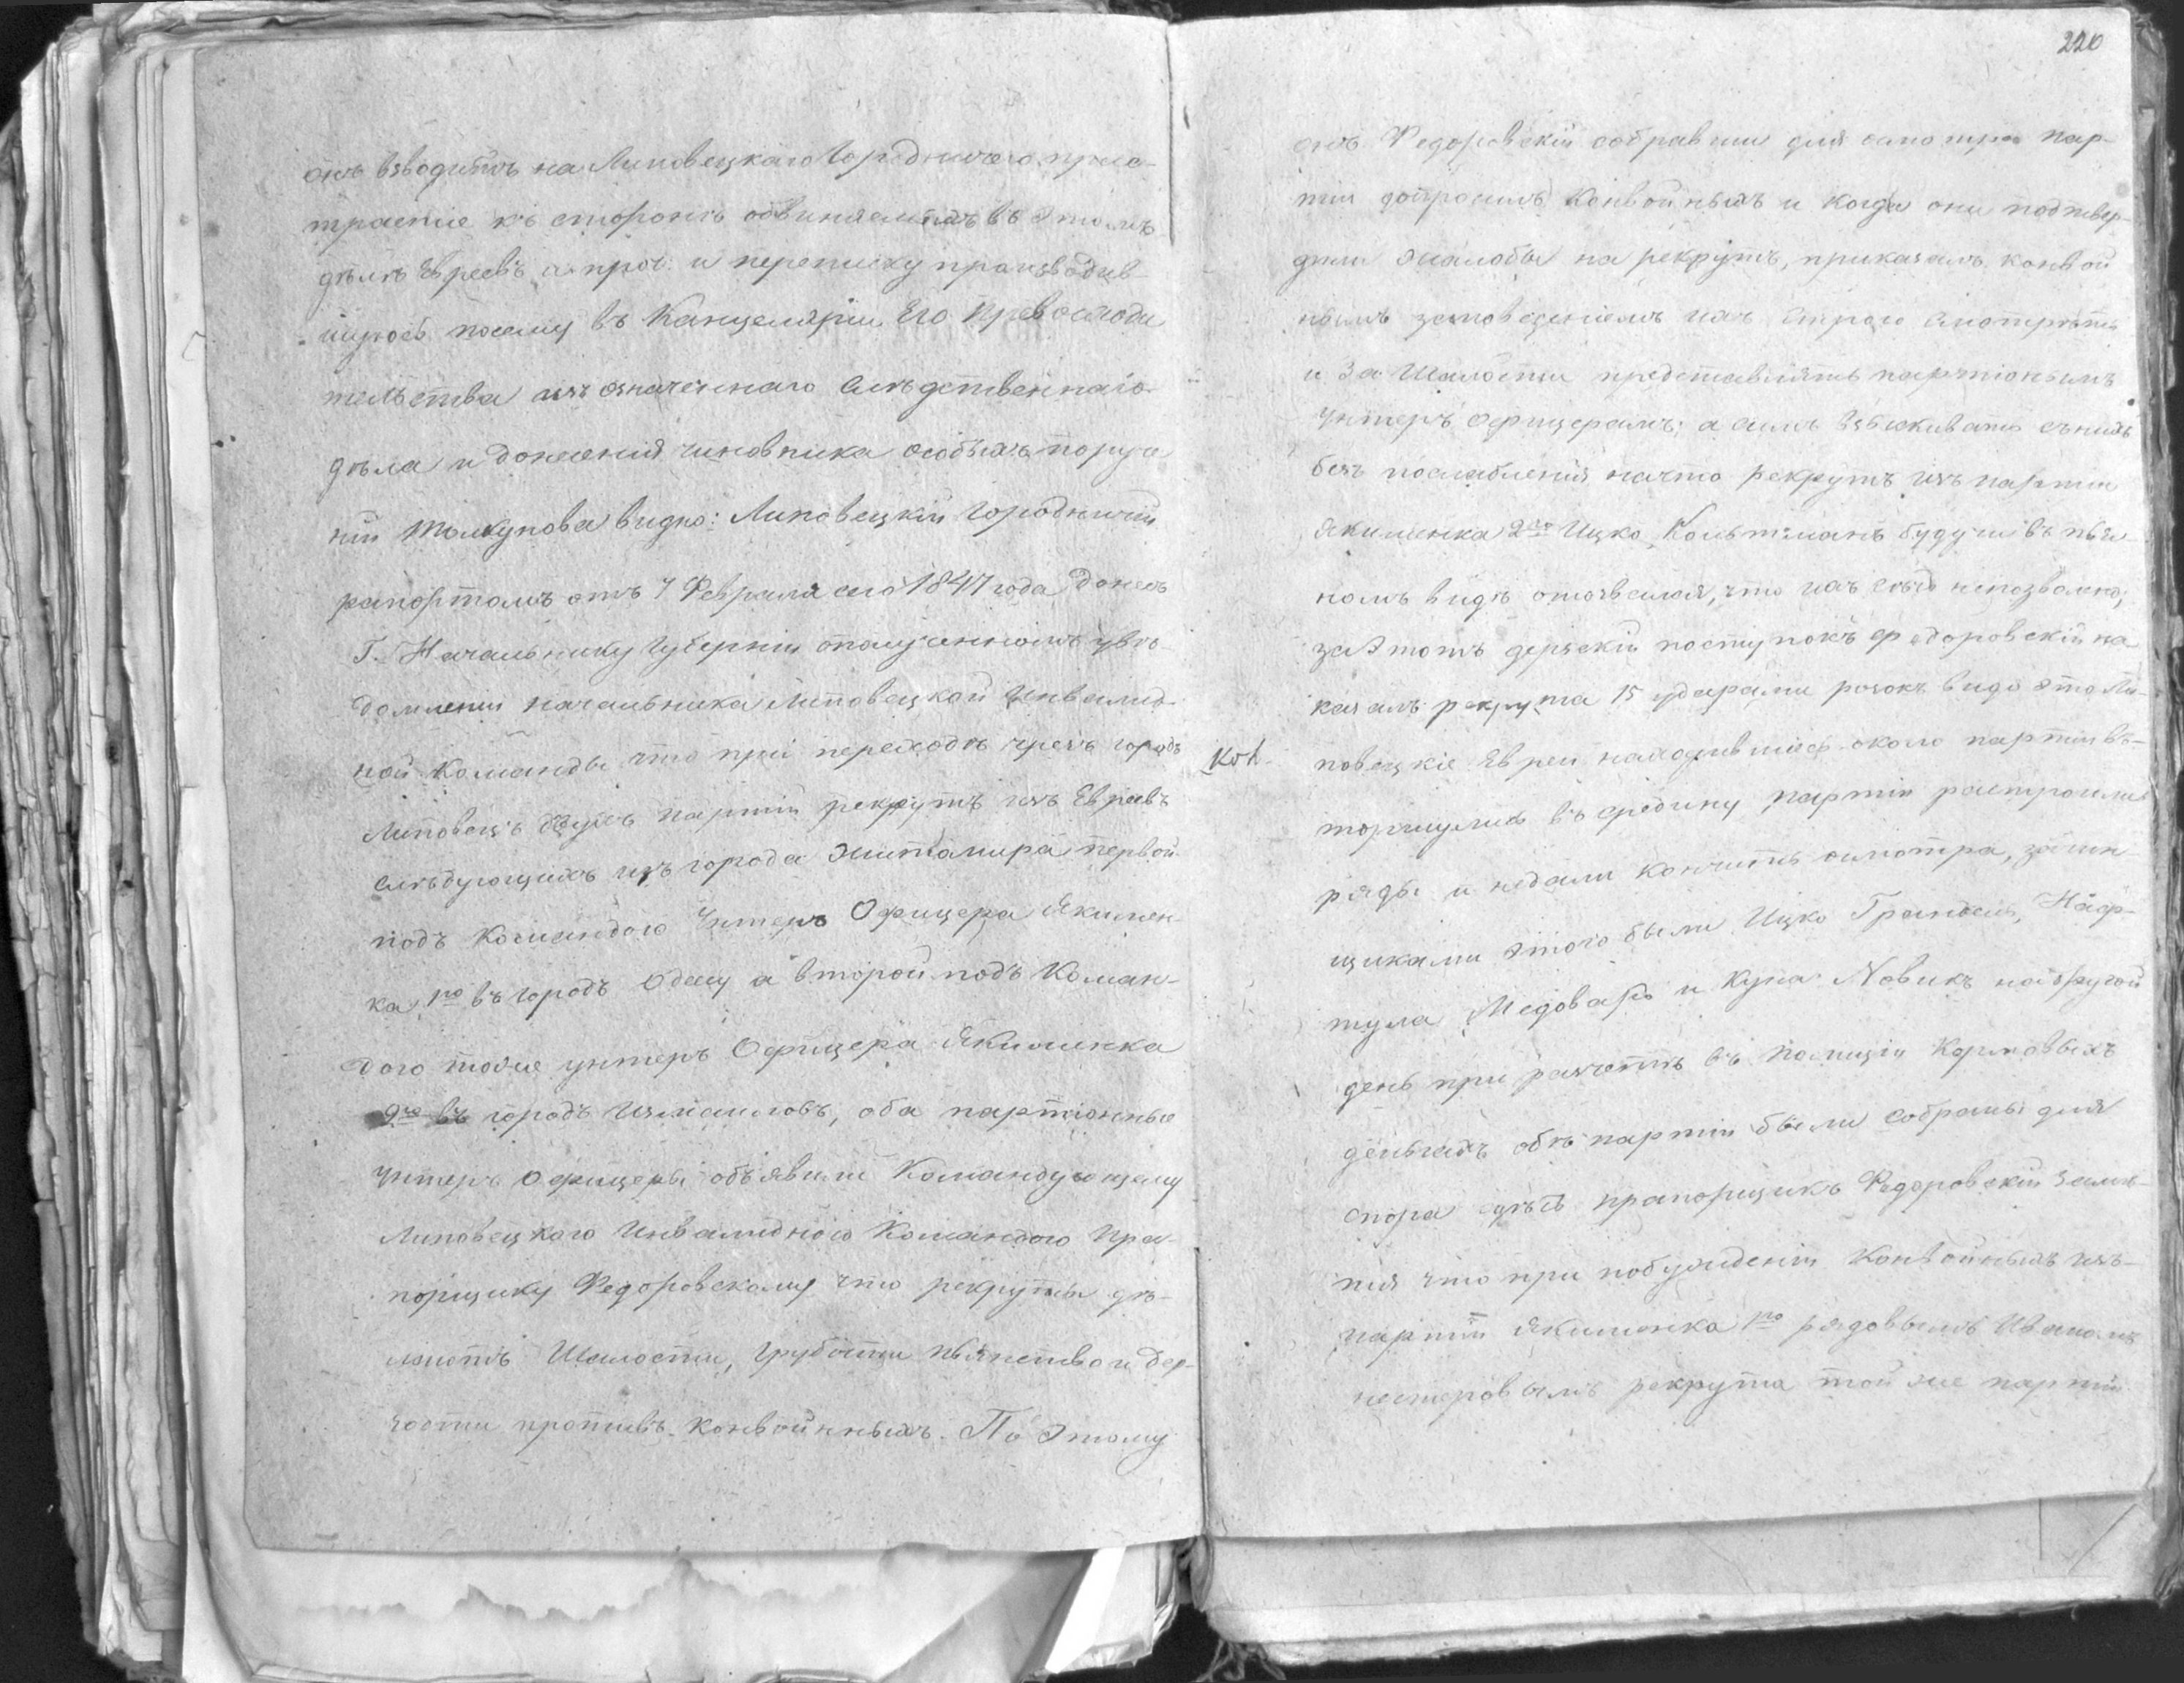 онъ взводитъ на Липовецкаго Городничего прис-
трастіе къ сторонѣ обвиняемыхъ въ этомъ
дѣлѣ Евреевъ и проч: и переписку производив-
шуюсь посему въ Канцеляріи Его Превосходи
тельства изъ означеннаго Слѣдственнаго
дѣла и донесенія чиновника особыхъ поруче
ній Толкунова видно: Липовецкій Городничій
рапортомъ отъ 4 Февраля сего 1847 года донесъ
Г. Начальнику Губерніи ополученномъ увѣ-
домленіи начальника Липовецкой Инвалид-
ной Команды что при переходѣ чрезъ городъ
Липовецъ двухъ партій рекрутъ изъ Евреевъ
слѣдующихъ изъ города Житомира первой
подъ Командою Унтеръ Офицера Якимен-
ка 1го въ городъ Одессу а второй подъ Коман-
дою тоже унтеръ Офицера Якименка
2го въ городъ Измаиловъ, оба партіонные
Унтеръ Офицеры объявили Командующему
Липовецкого Инвалидного Командою Пра-
порщику Федоровскому что рекруты дѣ-
лаютъ Шалости, грубости пьянство и дер-
зости противъ конвойнныхъ. По этому
220
онъ Федоровскій собравши для осмотра пар-
тіи допросилъ Конвойныхъ и когда они подтвер-
дили жалобы на рекрутъ, приказалъ конвой
нымъ заповеденіемъ ихъ Строго Смотрѣть
и За Шалости представлять партіоннымъ
Унтеръ Офицерамъ; а симъ взыскивать снихъ
безъ послабленія начто рекрутъ изъ партіи
Якименка 2го Ицко Кольтманъ будучи въ пья-
номъ видѣ отозвался, что ихъ сѣчь непозволено;
заэтотъ дерзскій поступокъ Федоровскій на
казалъ рекрута 15 ударами розокъ видя это Ли-
Кол. повецкіе Евреи находившіеся около партіи въ-
торгнулись въ средину партіи растроили
ряды и недали кончить осмотра, зачин-
щиками этого были Ицко Грандель, Наф-
тула Медоваръ и Куна Новикъ надругой
день при расчетѣ въ Полиціи Кормовыхъ
деньгахъ обѣ партіи были собраны для
спора гдѣ прапорщикъ Федоровскій Замѣ-
тя что при побужденіи Конвойныхъ изъ
партіи Якименка 1го рядовымъ Иваномъ
нестеровымъ рекрута той же партіи